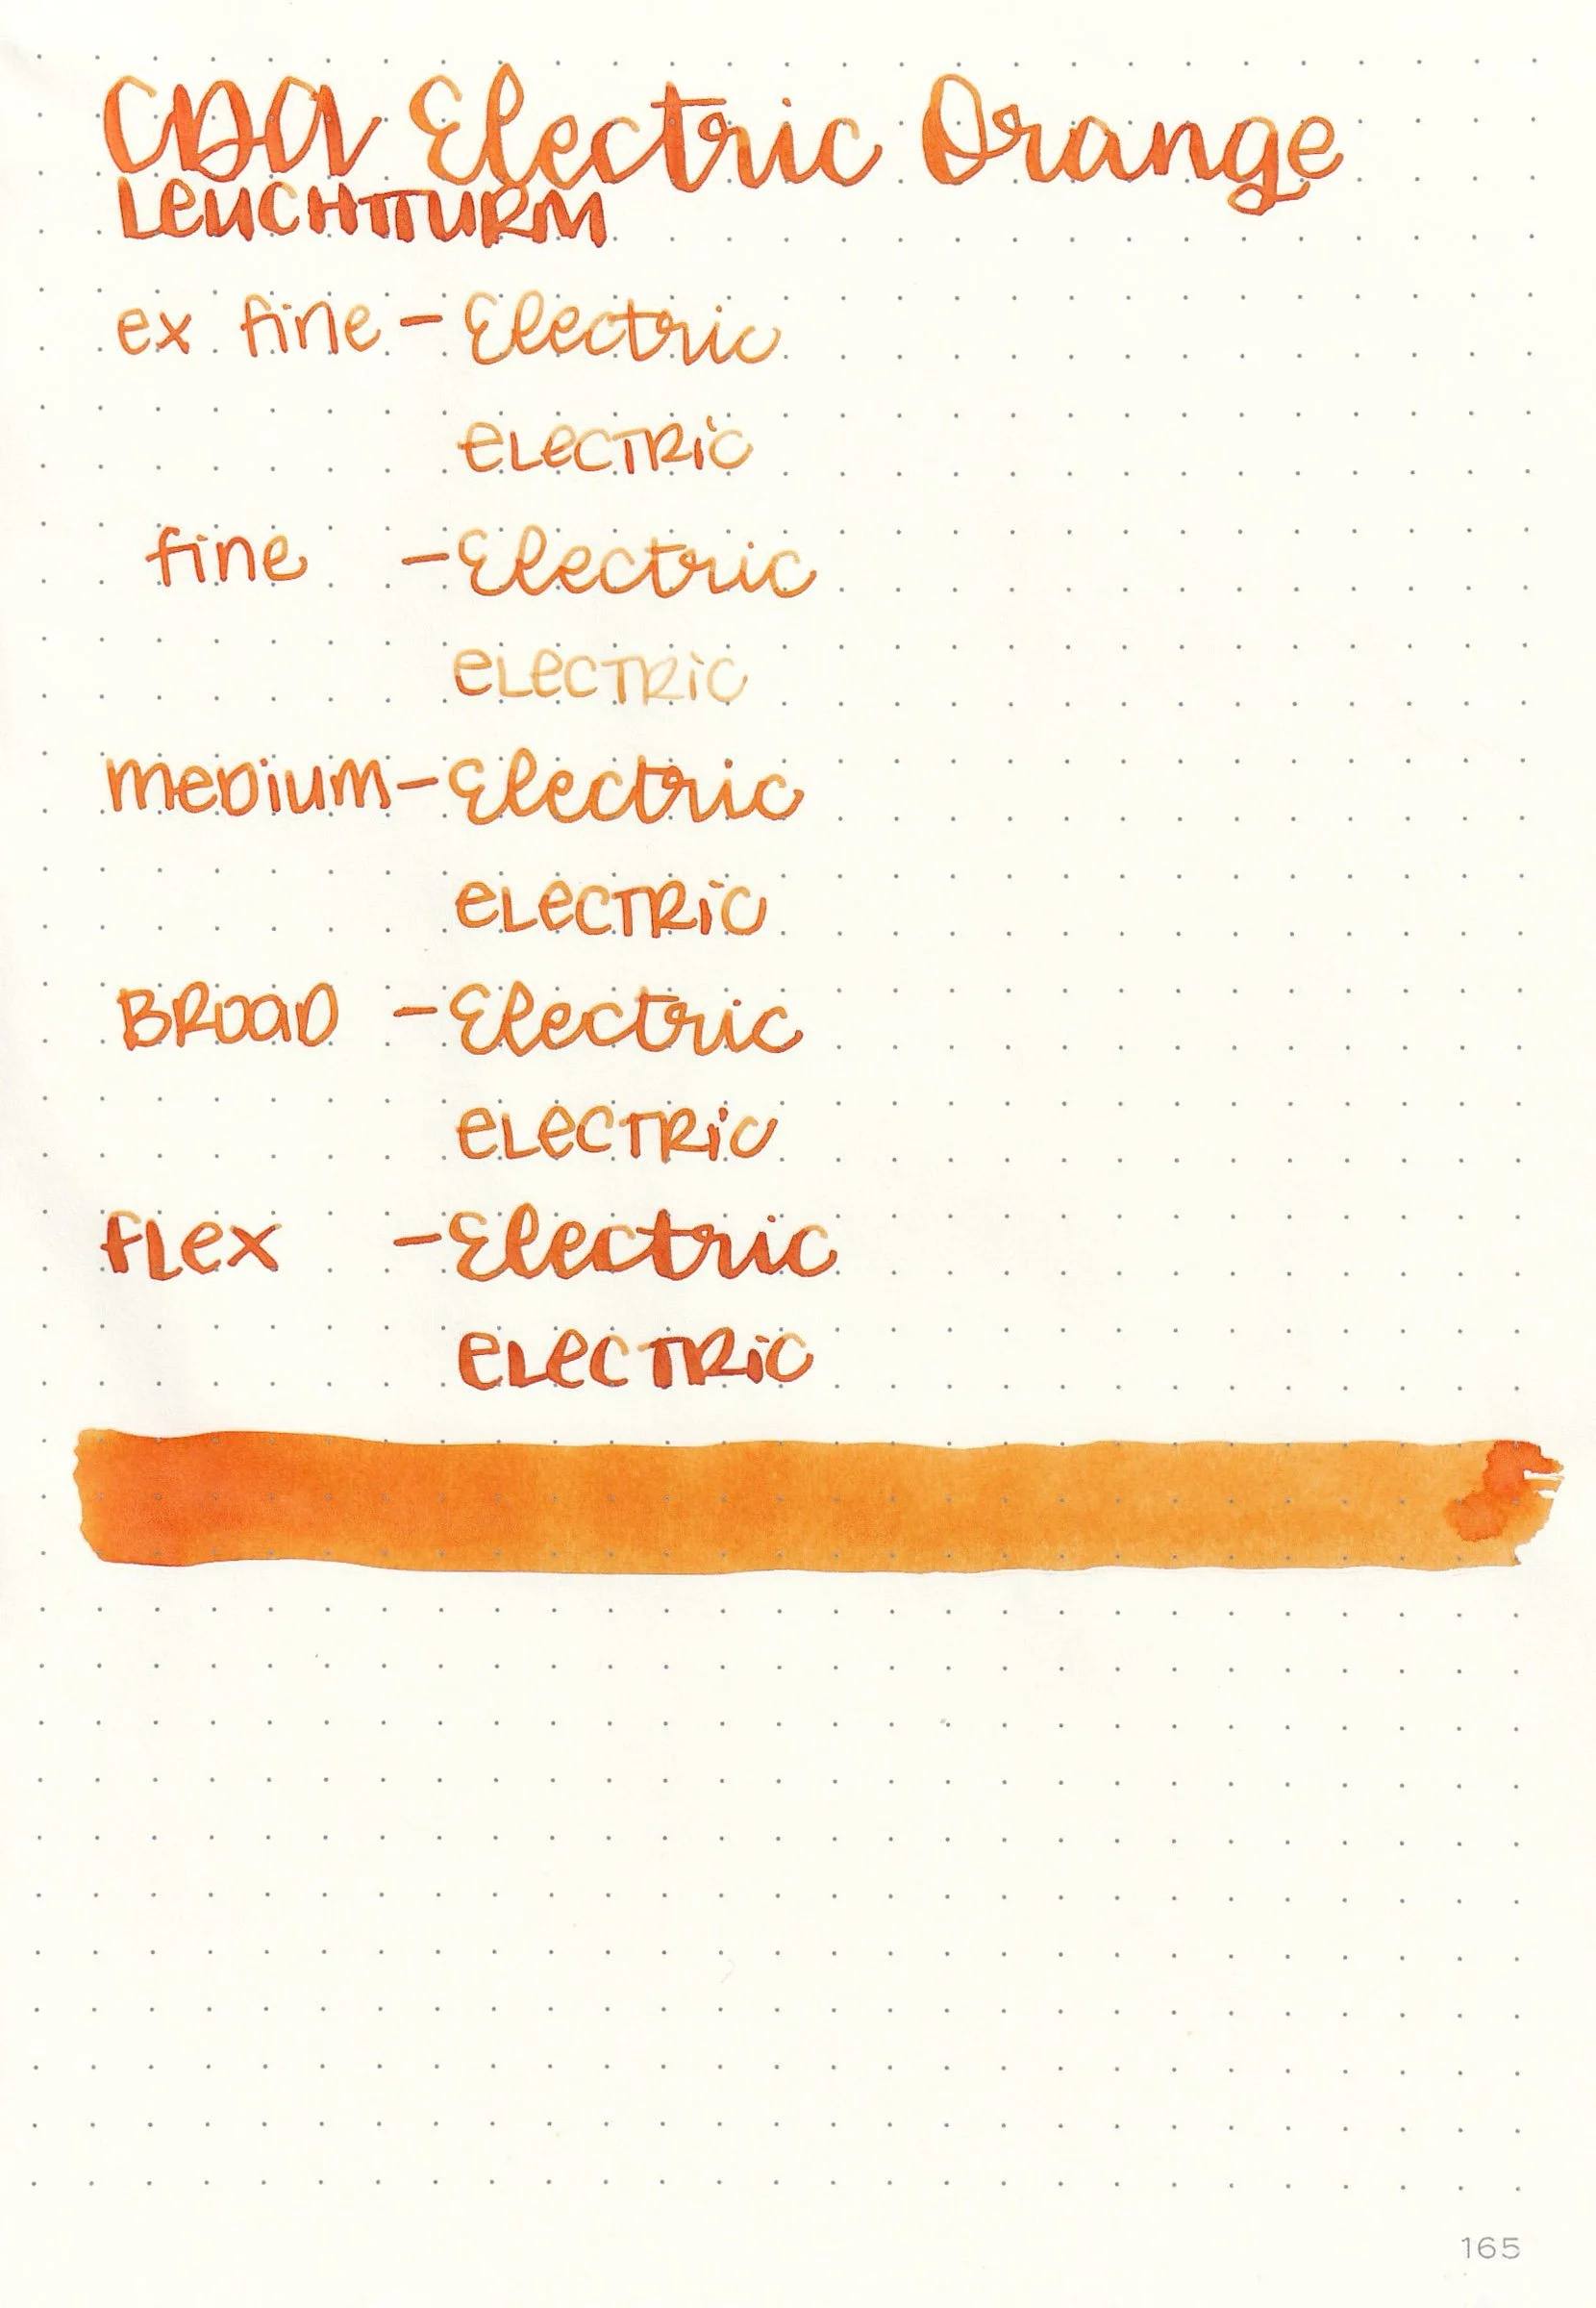 CDA Electric Orange
LEUCHTTURM
ex fine - Electric
eLeCTRiC
fine - Electric
eLeCTRiC
meDium - Electric
eLeCTRiC
BROaD - Electric
eLeCTRiC
fLex - Electric
eLeCTRiC
165